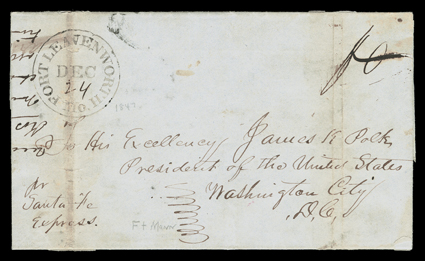 FORT LEAVENWORTH
DEC
24
Mo.
10
1847.
His Excellency James K Polk
President of the United States
Washington City
D.C.
pr
Santa Fe
Express.